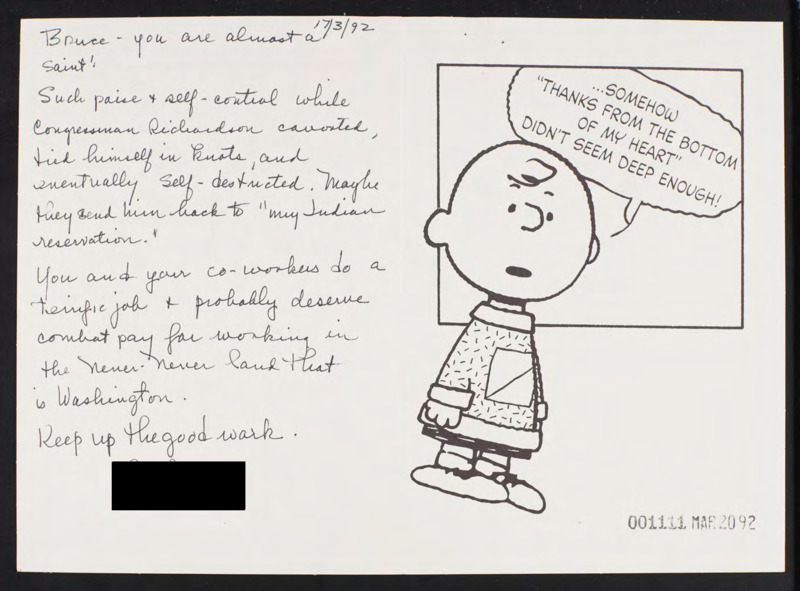 17/3/92
Bruce - you are almost a
saint!
Such poise & self-control while
Congressman Richardson cavorted,
tied himself in knots, and
eventually self-destructed. Maybe
they send him back to "my Indian
reservation."
You and your co-workers do a
terrific job & probably deserve
combat pay for working in
the never-never land that
is Washington.
Keep up the good work.
...SOMEHOW
"THANKS FROM THE BOTTOM
OF MY HEART"
DIDN'T SEEM DEEP ENOUGH!
001111 MAR 20 92